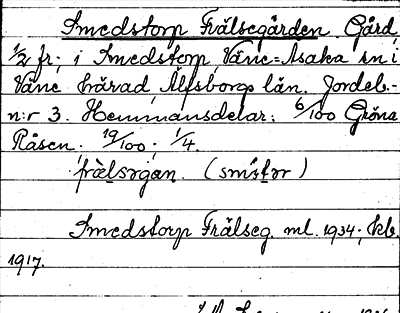 Smedstorp Frälsegården Gård
1/2 fr; i Smedstorp Väne=Åsaka sn i
Väne härad Älvsborgs län. Jordeb.-
n:r 3. Hemmansdelar: 6/100 Gröna
Råsen. 19/100; 1/4.
frälsəgan. (smistər)
Smedstorp Frälseg. ml. 1934; kb.
1917.